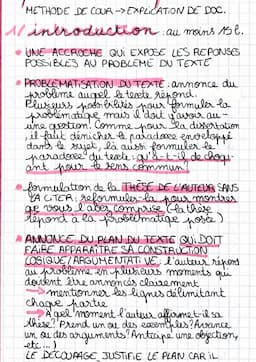 METHODE DE COUR → EXPLICATION DE DOC.
1/ introduction : au moins 15 l.
• UNE ACCROCHE QUI EXPOSE LES REPONSES
POSSIBLES AU PROBLEME DU TEXTE
• PROBLEMATISATION DU TEXTE : annonce du
problème auquel le texte répond.
Plusieurs possibilités pour formuler la
problématique mais il doit y avoir au-
une question. Comme pour la dissertation
, il faut dénicher le paradoxe enveloppé
dans le sujet, là aussi formuler le
paradoxe du texte : qu'a-t-il de choqu-
ant pour le sens commun
• formulation de la THÈSE DE L'AUTEUR SANS
LA CITER : reformuler-la pour montrer
que vous l'avez comprise (la thèse
répond à la problématique posée)
• ANNONCE DU PLAN DU TEXTE QUI DOIT
FAIRE APPARAÎTRE SA CONSTRUCTION
LOGIQUE/ARGUMENTATIVE : l'auteur répond
au problème en plusieurs moments qui
doivent être annoncés clairement
→ mentionner les lignes délimitant
chaque partie
→ A quel moment l'auteur affirme-t-il sa
thèse? Prend un ou des exemples? Avance
un ou des arguments? Anticipe une objection,
etc...)
LE DÉCOUPAGE JUSTIFIE LE PLAN CAR IL